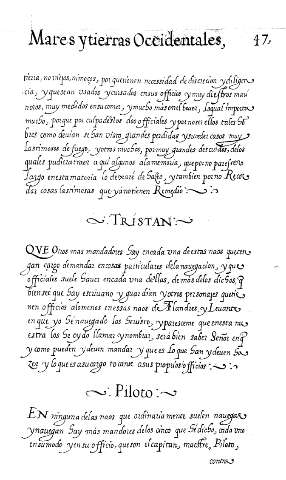 Mares y tierras Occidentales, 47.
peria, no viejos, ni necios, por que tienen necessidad de discrecion y diligen
cia, y que sean usados y cursados en sus officios y muy diestros mari
neros, muy medidos en su comer, y mucho mas en el bever, lo qual importa
mucho, porque por culpa destos dos officiales y por no ser ellos tales Ho
bres como devian se han visto grandes perdidas y sucedes casos muy
lastimosos de fuego, y otros muchos, por muy grandes descuidos, de los
quales pudiera traer a qui algunos a la memoria, que por no parescer
largo en esta materia lo dexare de hazer, y tambien por no Recor
dar cosas lastimeras que ya no tienen Remedio
TRISTAN
QUE Otros mas mandadores hay en cada una de estas naos que ten
gan cargo de mandar en cosas particulares de la navegacion, y que
officiales suele haver en cada una dellas, de mas de los dichos,
bien se que hay escrivano y guardian y otros personajes que tie
nen officios alomenes en essas naos de Flandres, y Levante
en que yo he navegado los he visto, y paresceme que en esta nu
estra los he oydo llamar y nombrar, sera bien saber de nos en q̃
y como pueden y deven mandar y que es lo que han y deven ha
zer y lo que es a su cargo tocante a sus propios officios
Piloto
EN ninguna delas naos que ordinaria mente suelen navegar
y navegan hay más mandores delos cinco que he dicho, cada uno
en su modo y en su officio, que son el capitan, maestre, Piloto,
contra